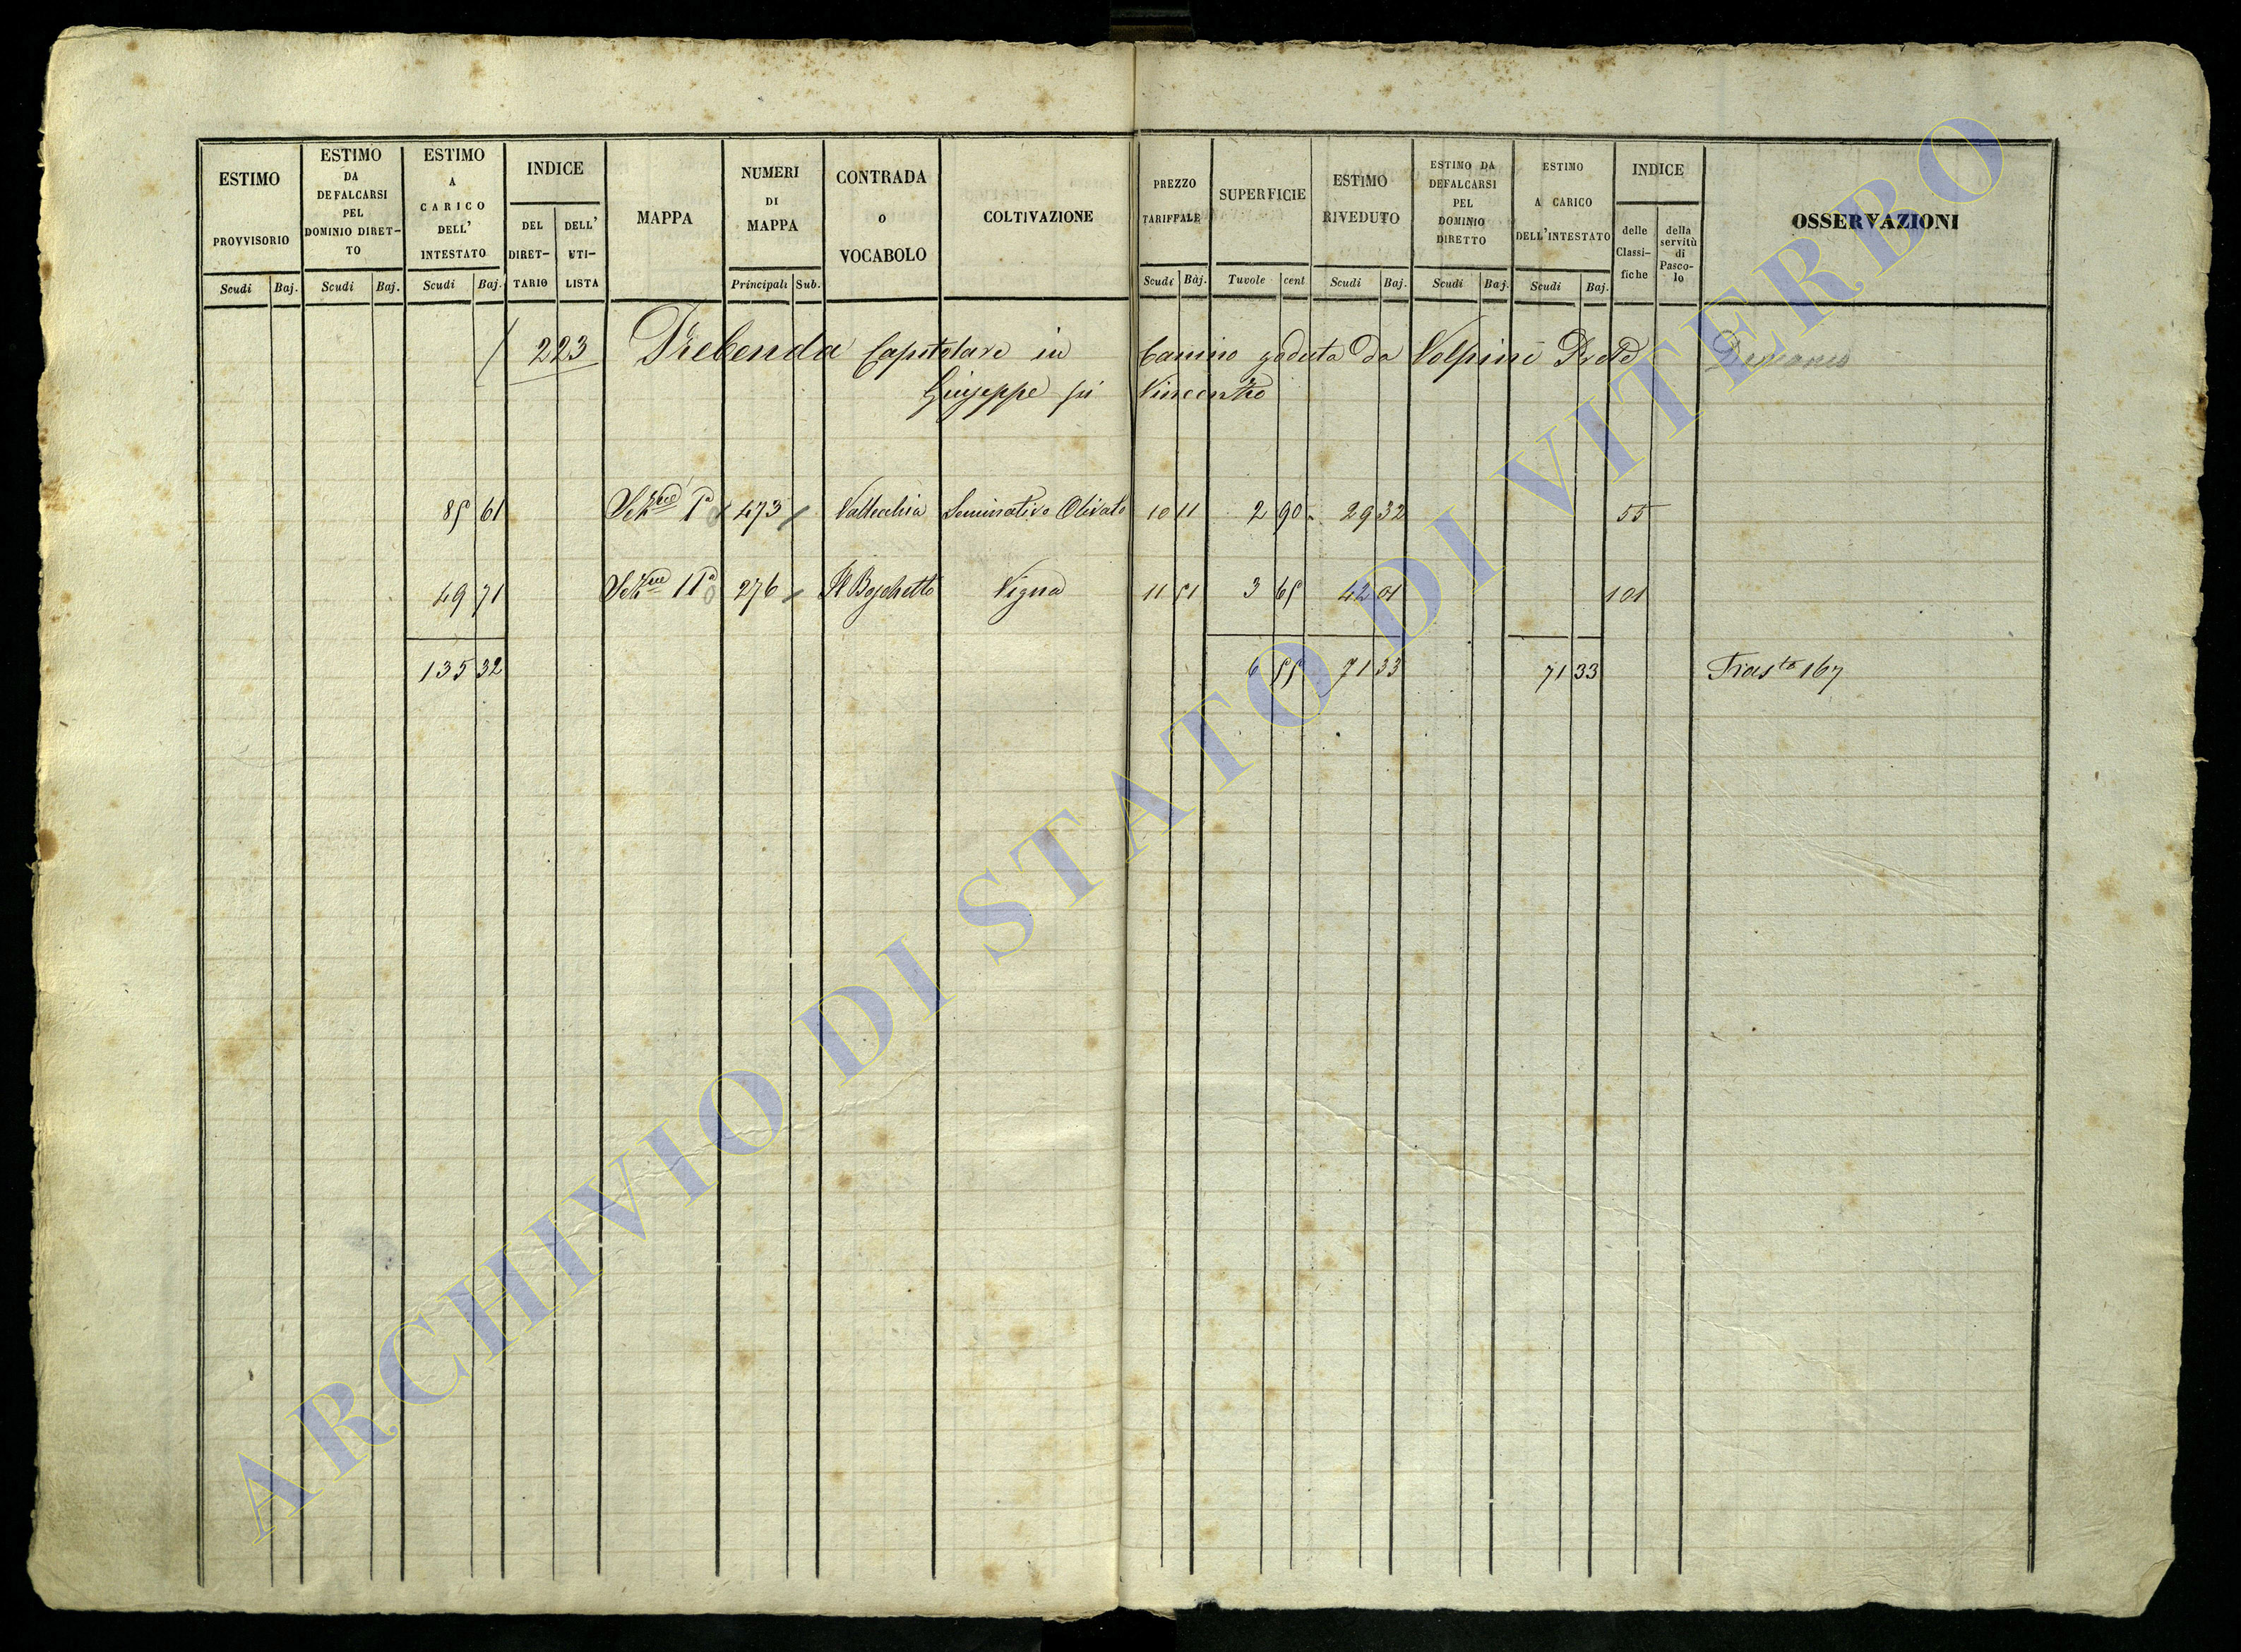 ESTIMO PROVVISORIO
Scudi Baj.
ESTIMO DA DEFALCARSI PEL DOMINIO DIRET-TO
Scudi Baj.
ESTIMO A CARICO DELL' INTESTATO
Scudi Baj.
INDICE
DEL DIRET-TARIO
DELL' UTI-LISTA
MAPPA
NUMERI DI MAPPA
Principali Sub.
CONTRADA o VOCABOLO
COLTIVAZIONE
PREZZO TARIFFALE
Scudi Baj.
SUPERFICIE
Tavole cent
ESTIMO RIVEDUTO
Scudi Baj.
ESTIMO DA DEFALCARSI PEL DOMINIO DIRETTO
Scudi Baj.
ESTIMO A CARICO DELL'INTESTATO
Scudi Baj.
INDICE
delle Classi-fiche
della servitù di Pasco-lo
OSSERVAZIONI
223 Prebenda Capitolare in Canino goduta da Volpini Prete
Giuseppe fu Vincenzo
85 61 Sezne Ia 473 Vallecchia Seminativo Olivato 10 11 2 90 29 32 55
49 71 Sezne IIa 276 Il Boschetto Vigna 11 51 3 65 42 01 101
135 32 6 55 71 33 71 33 Trasto 167
ARCHIVIO DI STATO DI VITERBO